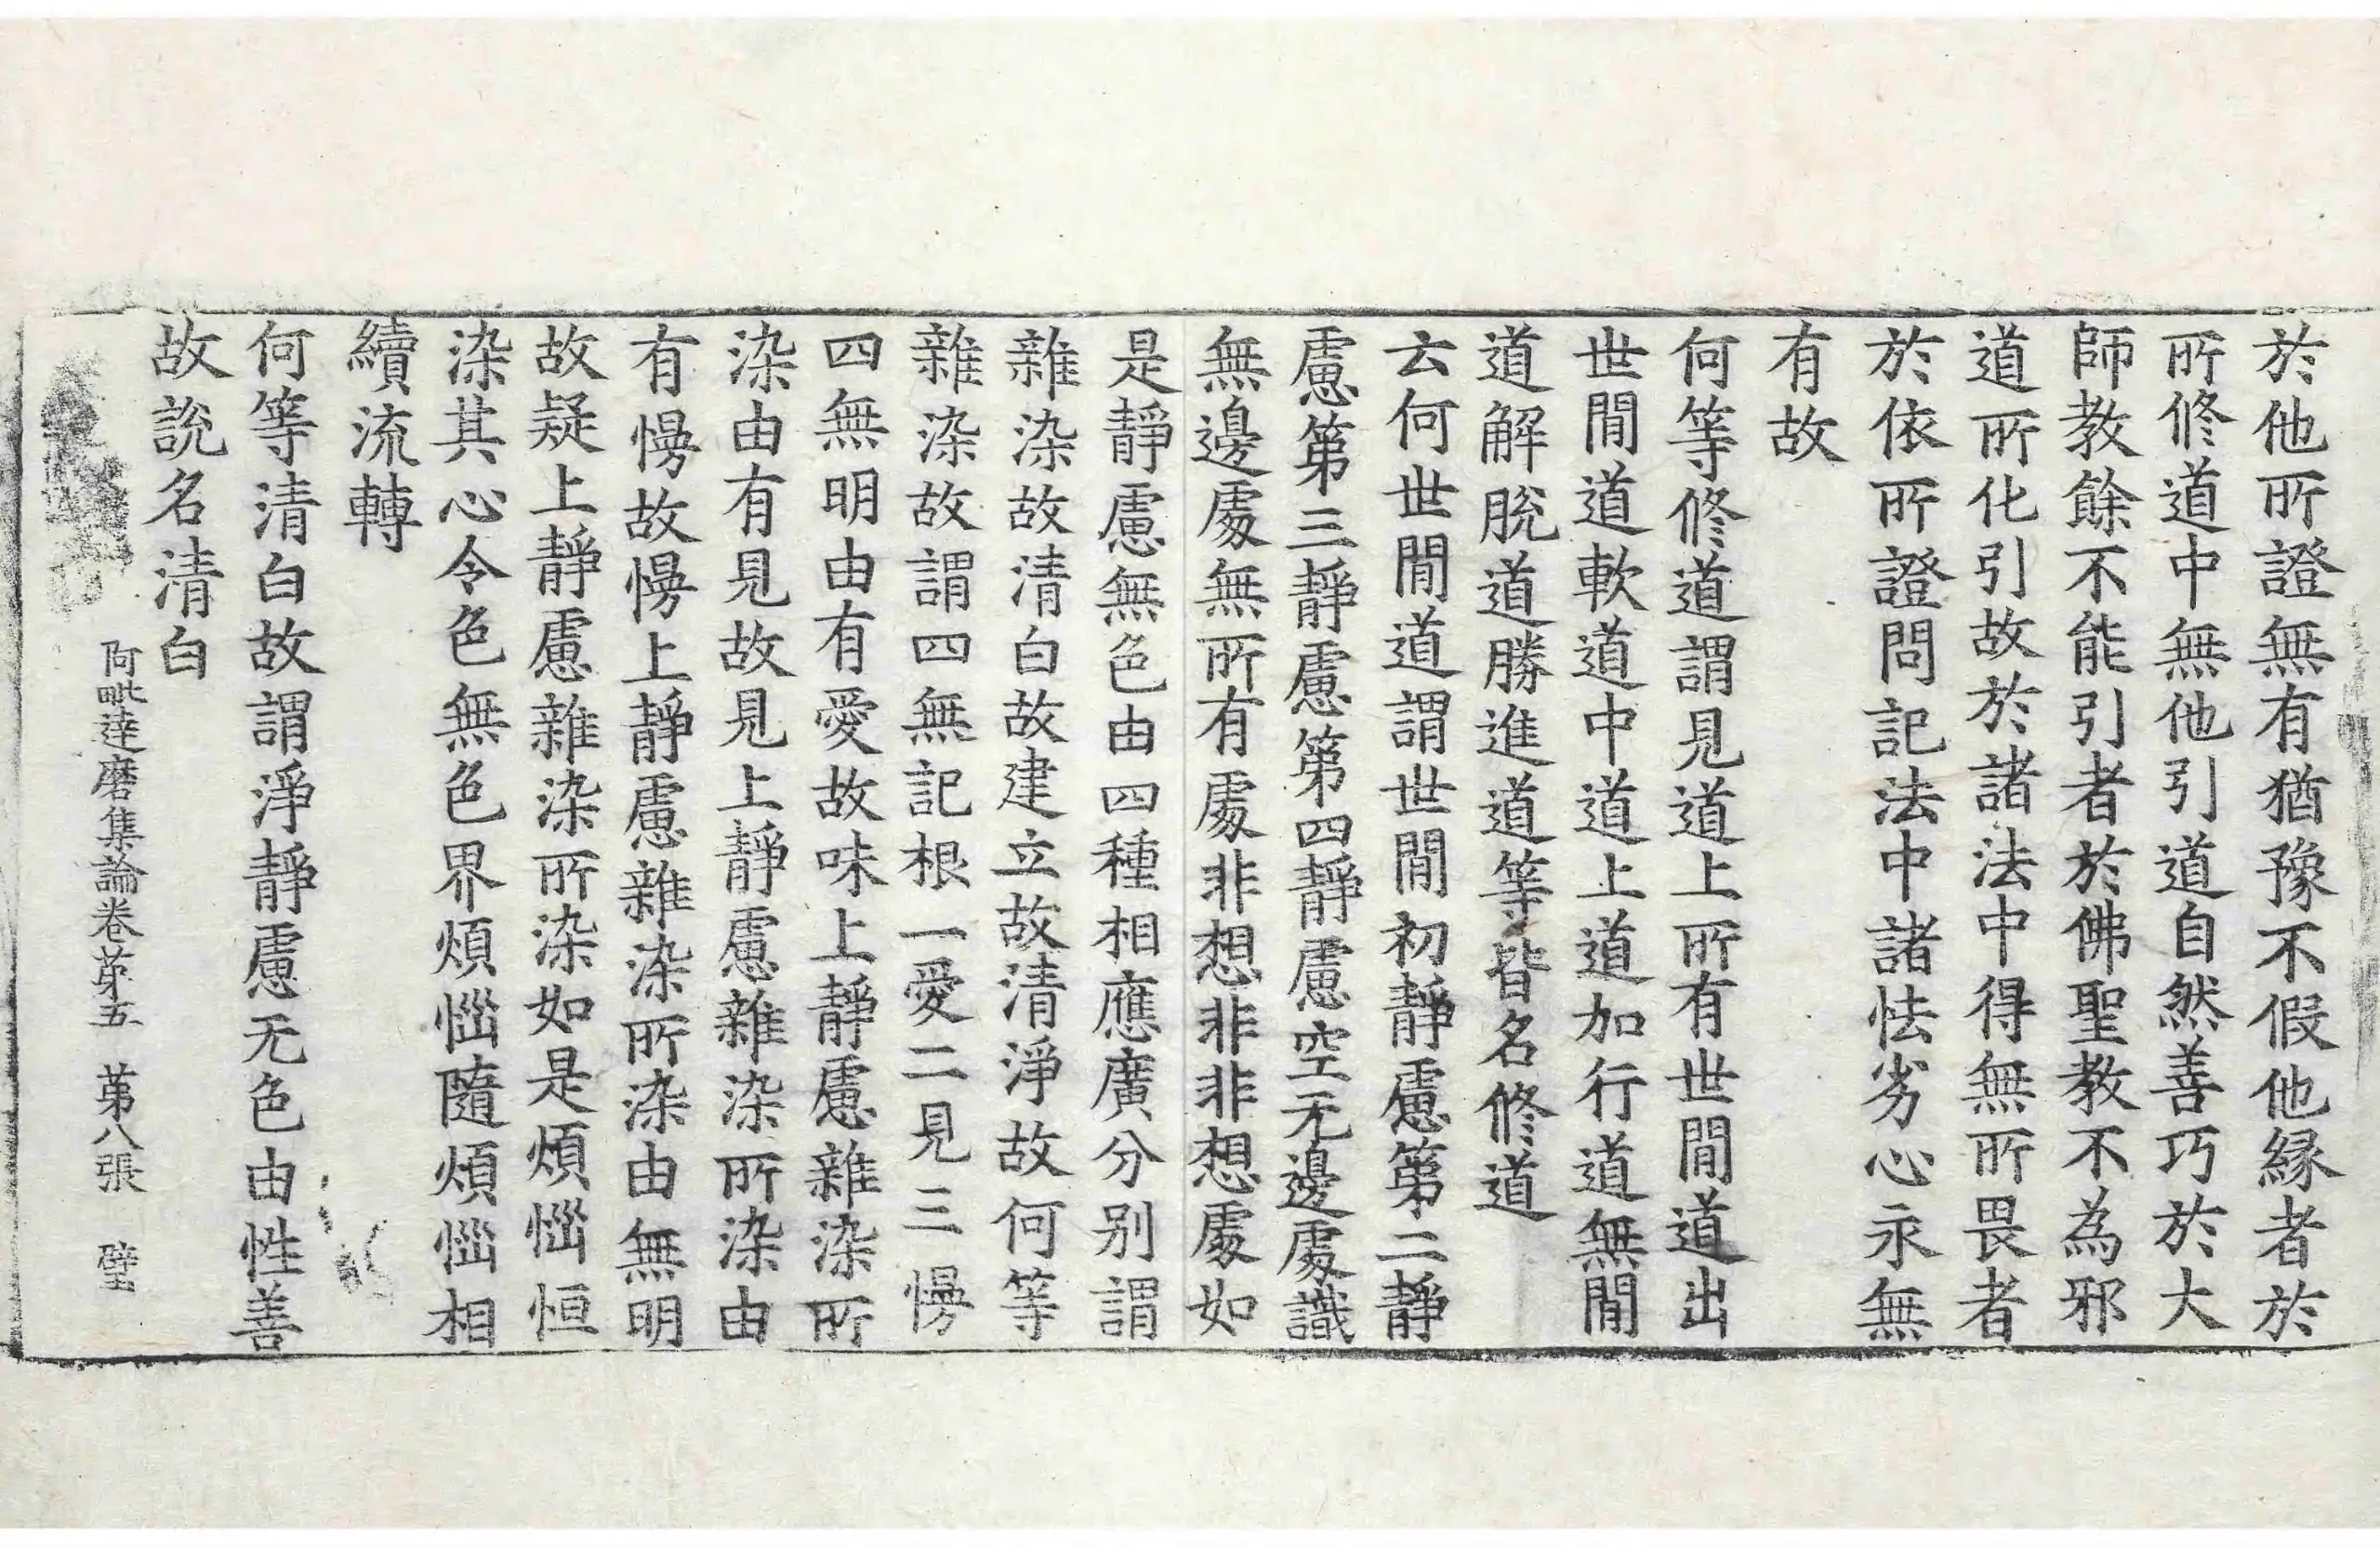 於他所證無有猶豫不假他緣者於
所修道中無他引道自然善巧於大
師教餘不能引者於佛聖教不為邪
道所化引故於諸法中得無所畏者
於依所證問記法中諸怯劣心永無
有故
何等修道謂見道上所有世間道出
世間道軟道中道上道加行道無間
道解脫道勝進道等皆名修道
云何世間道謂世間初靜慮第二靜
慮第三靜慮第四靜慮空无邊處識
無邊處無所有處非想非非想處如
是靜慮無色由四種相應廣分別謂
雜染故清白故建立故清淨故何等
雜染故謂四無記根一愛二見三慢
四無明由有愛故味上靜慮雜染所
染由有見故見上靜慮雜染所染由
有慢故慢上靜慮雜染所染由無明
故疑上靜慮雜染所染如是煩惱恒
染其心令色無色界煩惱隨煩惱相
續流轉
何等清白故謂淨靜慮无色由性善
故說名清白
阿毗達磨集論卷苐五 苐八張 壁